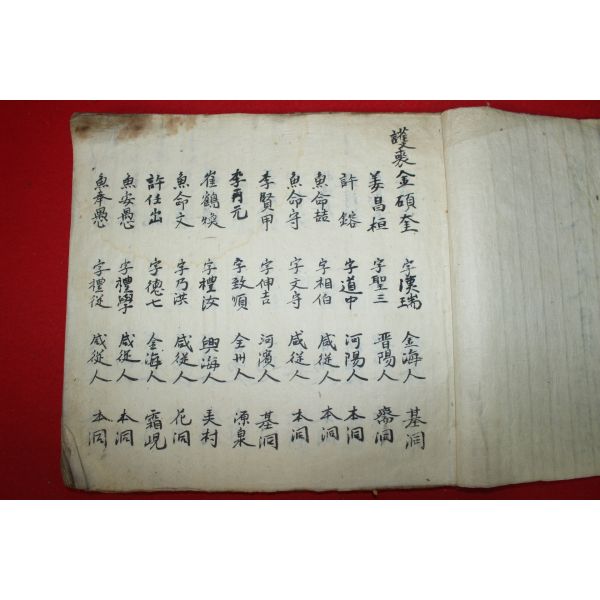 護喪 金碩奎 字漢瑞 金海人 基洞
姜昌桓 字聖三 晋陽人 齋洞
許鎔 字道中 河陽人 本洞
魚命喆 字相伯 咸從人 本洞
魚命守 字文守 咸從人 本洞
李賢甲 字伸吉 河濱人 基洞
李再元 字致順 全州人 源泉
崔鶴煥 字禮汝 興海人 美村
魚命文 字乃洪 咸從人 花洞
許仕出 字德七 金海人 霜峴
魚安愚 字禮學 咸從人 本洞
魚奉愚 字禮從 咸從人 本洞